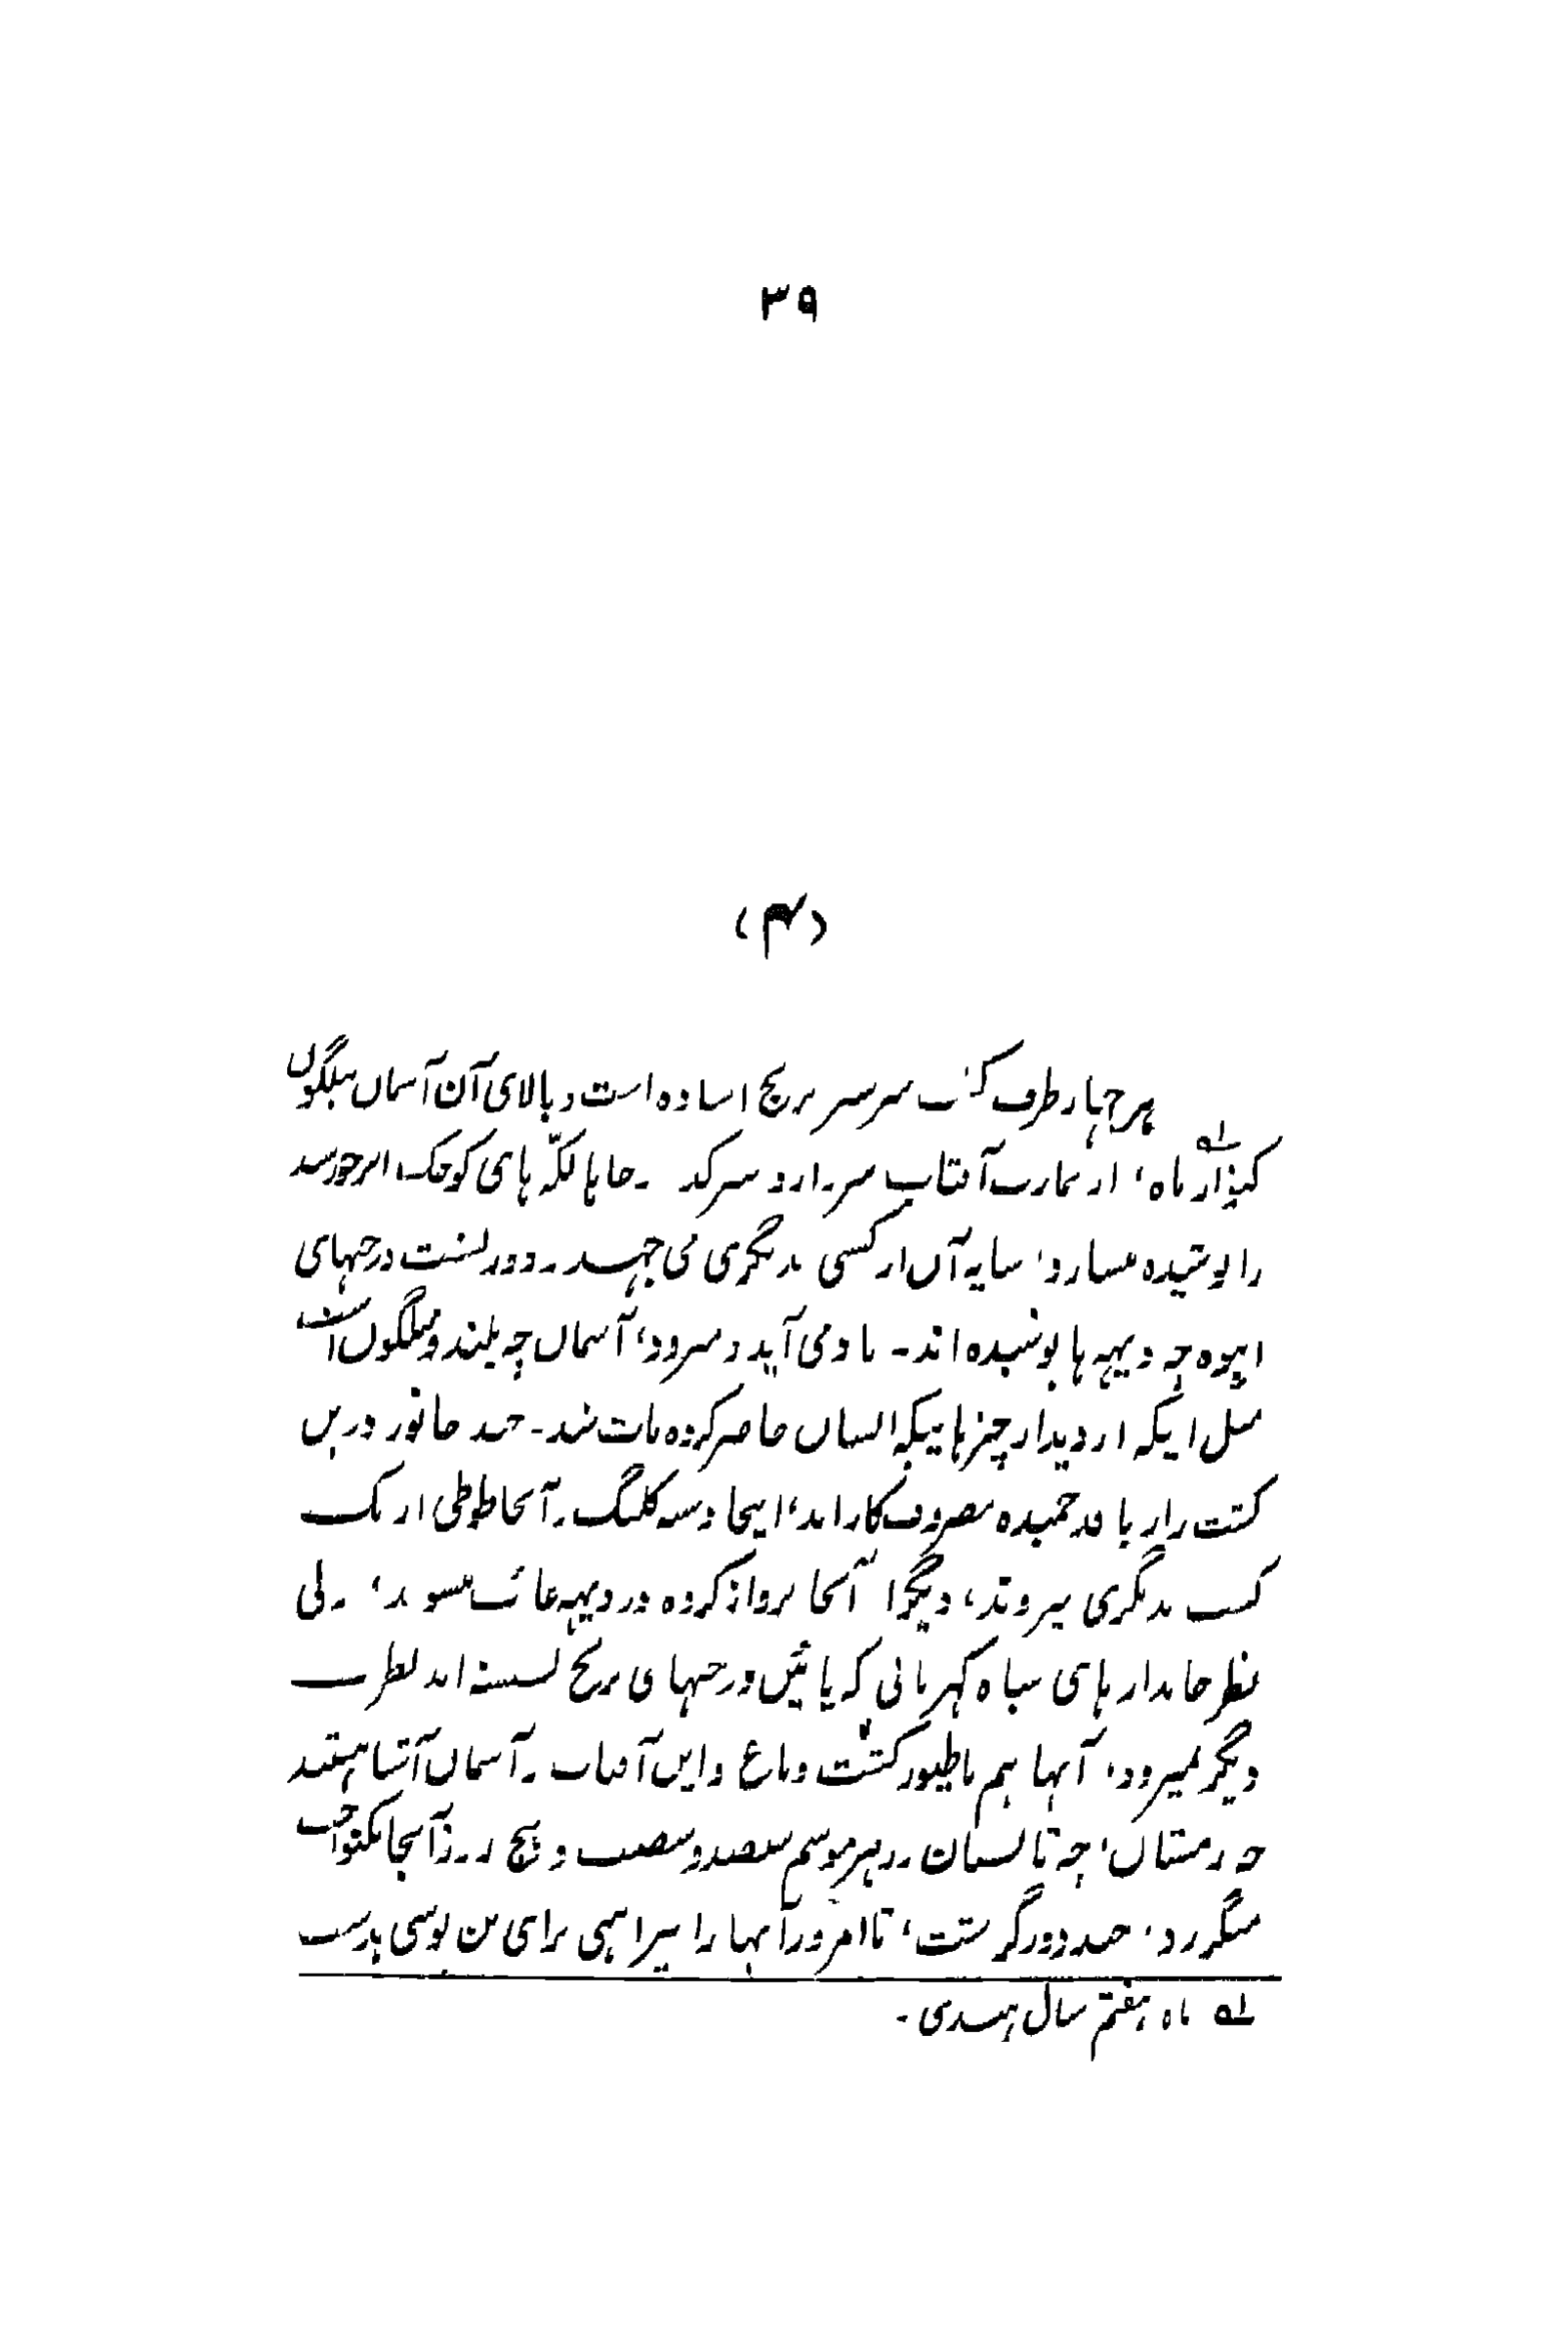 ۳۹
(۴)
بہر چہار طرف کشت سرسبز برنج استاده است و بالای آن آسمان نیلگوں
کنوار ماه، از تمازت آفتاب سر دارد ابر کوچک
را پوشیده میسازد، سایہ آں از کسی بدیگری می جہد۔ دور پشت درختہای
انبوه چہ دیہہ ہا پوشیده اند۔ باد می آید و میرود، آسماں چہ بلند و نیلگوں است
مثل اینکہ از دیدار چیزہائیکہ انساں حاصر کرده مات شد۔ چند جانور دریں
کشت زار با قد خمیده مصروف کار اند، اینجا دستہ کلنگ و آنجا طوطی از یک
کشت بدیگری میروند، دیگر آنجا پرواز کرده در دیہہ غائب میشوند، ولی
نظر جاندار ہای سیاه کہربائی کہ پائیں درختہای برنج نشستہ اند بطرف
دیگر نمیرود، آنہا ہم با طیور کشت و باغ و ایں آفتاب و آسماں آشنا ہستند
چہ زمستاں، چہ تابستان در ہر موسم سیصد و شصت و پنج روز آنجا یکنواخت
میگزرد، چند دور گزشت، تا امروز آنہا را پیراہنی برای تن پوشی بدست
لہ ماه ہفتم سال ہندی۔